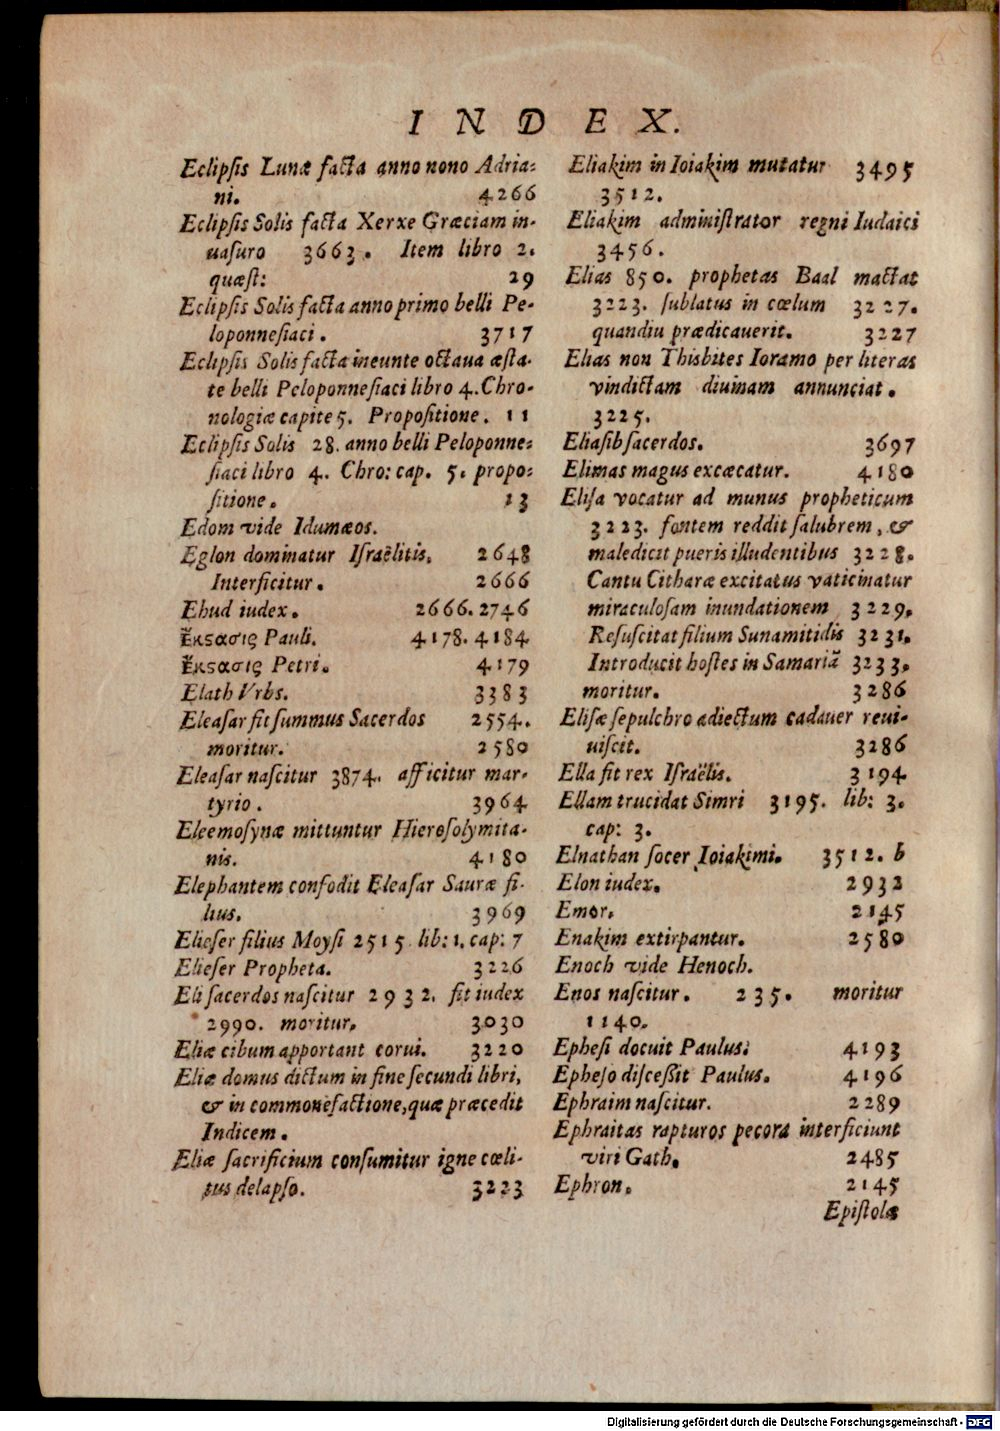 INDEX.
Eclipsis Lunæ facta anno nono Adria:
ni. 4266
Eclipsis Solis facta Xerxe Græciam in-
uasuro 3663. Item libro 2.
quæst: 29
Eclipsis Solis facta anno primo belli Pe-
loponnesiaci. 3717
Eclipsis Solis facta ineunte octaua æsta-
te belli Peloponnesiaci libro 4. Chro-
nologiæ capite 5. Propositione. 11
Eclipsis Solis 28. anno belli Peloponne:
siaci libro 4. Chro: cap. 5. propo:
sitione. 13
Edom vide Idumæos.
Eglon dominatur Israëlitis. 2648
Interficitur. 2666
Ehud iudex. 2666. 2746
Ἔκϛασις Pauli. 4178. 4184
Ἔκϛασις Petri. 4179
Elath Vrbs. 3383
Eleasar fit summus Sacerdos 2554.
moritur. 2580
Eleasar nascitur 3874. afficitur mar-
tyrio. 3964
Eleemosynæ mittuntur Hierosolymita-
nis. 4180
Elephantem confodit Eleasar Sauræ fi-
lius. 3969
Elieser filius Moysi 2515 lib: 1. cap: 7
Elieser Propheta. 3226
Eli sacerdos nascitur 2932. fit iudex
2990. moritur. 3030
Eliæ cibum apportant corui. 3220
Eliæ domus dictum in fine secundi libri,
& in commonefactione, quæ præcedit
Indicem.
Eliæ sacrificium consumitur igne cœli-
tus delapso. 3223
Eliakim in Ioiakim mutatur 3495
3512.
Eliakim administrator regni Iudaici
3456.
Elias 850. prophetas Baal mactat
3223. sublatus in cœlum 3227.
quandiu prædicauerit. 3227
Elias non Thisbites Ioramo per literas
vindictam diuinam annunciat.
3225.
Eliasib sacerdos. 3697
Elimas magus excæcatur. 4180
Elisa vocatur ad munus propheticum
3223. fontem reddit salubrem, &
maledicit pueris illudentibus 3228.
Cantu Citharæ excitatus vaticinatur
miraculosam inundationem 3229.
Resuscitat filium Sunamitidis 3231.
Introducit hostes in Samariã 3233.
moritur. 3286
Elisæ sepulchro adiectum cadauer reui-
uiscit. 3286
Ella fit rex Israëlis. 3194
Ellam trucidat Simri 3195. lib: 3.
cap: 3.
Elnathan socer Ioiakimi. 3512. b
Elon iudex. 2932
Emor. 2145
Enakim extirpantur. 2580
Enoch vide Henoch.
Enos nascitur. 235. moritur
1140.
Ephesi docuit Paulus. 4193
Epheso discessit Paulus. 4196
Ephraim nascitur. 2289
Ephraitas rapturos pecora interficiunt
viri Gath. 2485
Ephron. 2145
Epistolæ
Digitalisierung gefördert durch die Deutsche Forschungsgemeinschaft - DFG